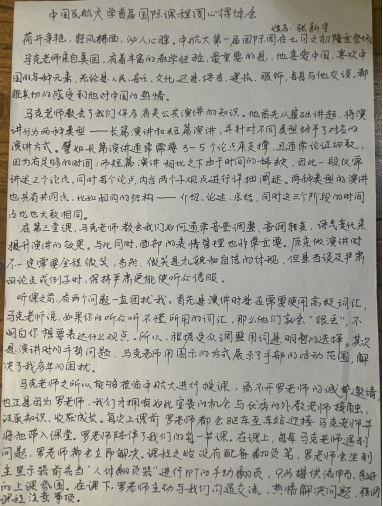 中国民航大学首届国际课程周心得体会
姓名：张新宇
荷开季艳，轻风拂面，沁人心脾。中航大第一届国际周在七月之初隆重登场。
马克老师来自美国，有着丰富的教学经验，最重要的是，他喜爱中国，喜欢中
国的各种元素，无论是人民、音乐、文化还是语言、建筑、服饰，每每与他交谈，都
能真切的感受到他对中国的热情。
马克老师教会了我们许多有关公共演讲的知识。他首先从基础讲起，将演
讲分为两种类型——长篇演讲和短篇演讲，并针对不同类型给予了对应的
演讲方式。譬如长篇演讲通常需要3-5个论点来支撑，且通常论证较长，
因为有足够的时间；而短篇演讲相比之下由于时间的掣肘，因此一般仅带
讲述2个论点，同时每个论点内含两个子观点进行详细阐述。两种类型的演讲
也具有共同点，比如相同的结构——介绍、论述、总结，同时这三个阶段的时间
占比也大致相同。
在第三堂课，马克老师教会我们如何通常音量调整、音调转变、语气变化来
提升演讲的效果。与此同时，面部的表情管理也非常重要，原来做演讲时
不一定需要全程微笑，当然，微笑是礼貌和自信的体现，但是当谈及严肃
的论点或例子时，保持严肃更能使听众信服。
听课之前，有两个问题一直困扰我。首先是演讲时是否常要使用高级词汇，
马克老师说，如果你的听众听不懂所用的词汇，那么他们就会“很丢”，不
明白你想要表达什么观点。所以，根据受众调整用词是明智的选择。其次
是演讲时的手势问题，马克老师用图示的方式展示了手部的活动范围，解
决了我多年的困扰。
马克老师之所以能够莅临中航大进行授课，离不开罗老师的诚挚邀请，
也正是因为罗老师，我们才拥有如此宝贵的机会与优秀的外教老师接触，
汲取知识，收获成长。每次上课前罗老师都会驱车至车站迎接马克老师并
将他带入课堂。罗老师陪伴了我们的每一节课。在课上，每每马克老师遇到
问题，罗老师都会立即解决。课程之始没有配备翻页笔，罗老师会坐到
主显示器前去当“人体翻页器”进行PPT的手动翻页，只为提供流畅、良好
的上课氛围。在课下，罗老师主动与我们沟通交流，热情解决问题，强调
课程注意事项。